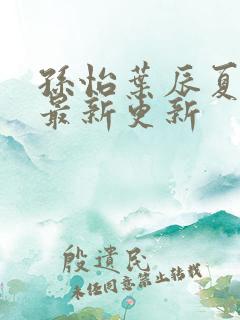 孫怡葉辰夏
最新更新
殷遺民
未任同意禁止轉載